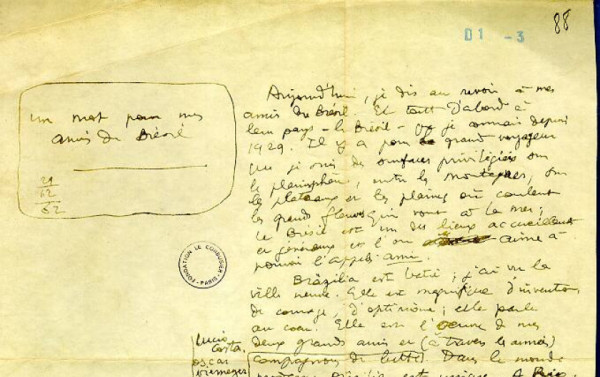 D1 -3
88
un mot pour mes
amis du Brésil
29
12
62
Aujourd'hui, je dis au revoir à mes
amis du Brésil. Et tout d'abord à
leur pays - le Brésil - que je connais depuis
1929. Il y a pour grand voyageur
que je suis de surfaces privilégiées sur
le planisphère, entre les montagnes, sur
les plateaux et les plaines où coulent
les grands fleuves qui vont à la mer;
Le Brésil est un des lieux accueillant
et généreux et l'on aime à
pouvoir l'appeler ami.
Brazilia est batie; j'ai vu la
ville neuve. Elle est magnifique d'invention
de courage, d'optimisme; elle parle
au cœur. Elle est l'œuvre de mes
deux grands amis et (à travers les années)
compagnons de lutte Dans le monde
est unique. A Rio
Lucio
Costa,
oscar
niemeyer
FONDATION LE CORBUSIER
PARIS